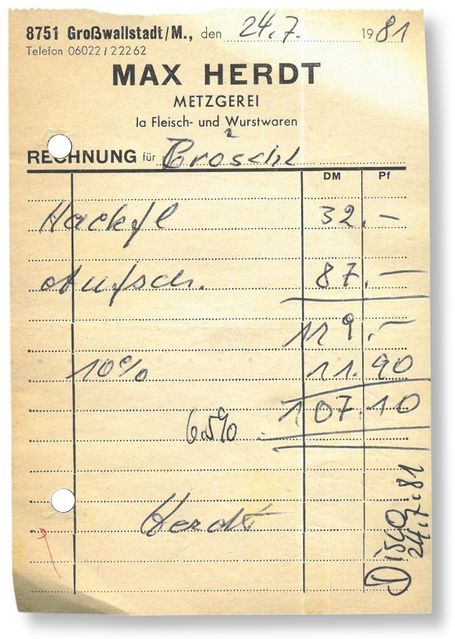 8751 Großwallstadt/M., den 24.7. 1981
Telefon 06022/22262
MAX HERDT
METZGEREI
Ia Fleisch- und Wurstwaren
RECHNUNG für
DM Pf
Hackfl 32.–
Aufsch. 87.–
119.–
10% 11.90
107.10
6,5%
Herdt
Disco
24.7.81